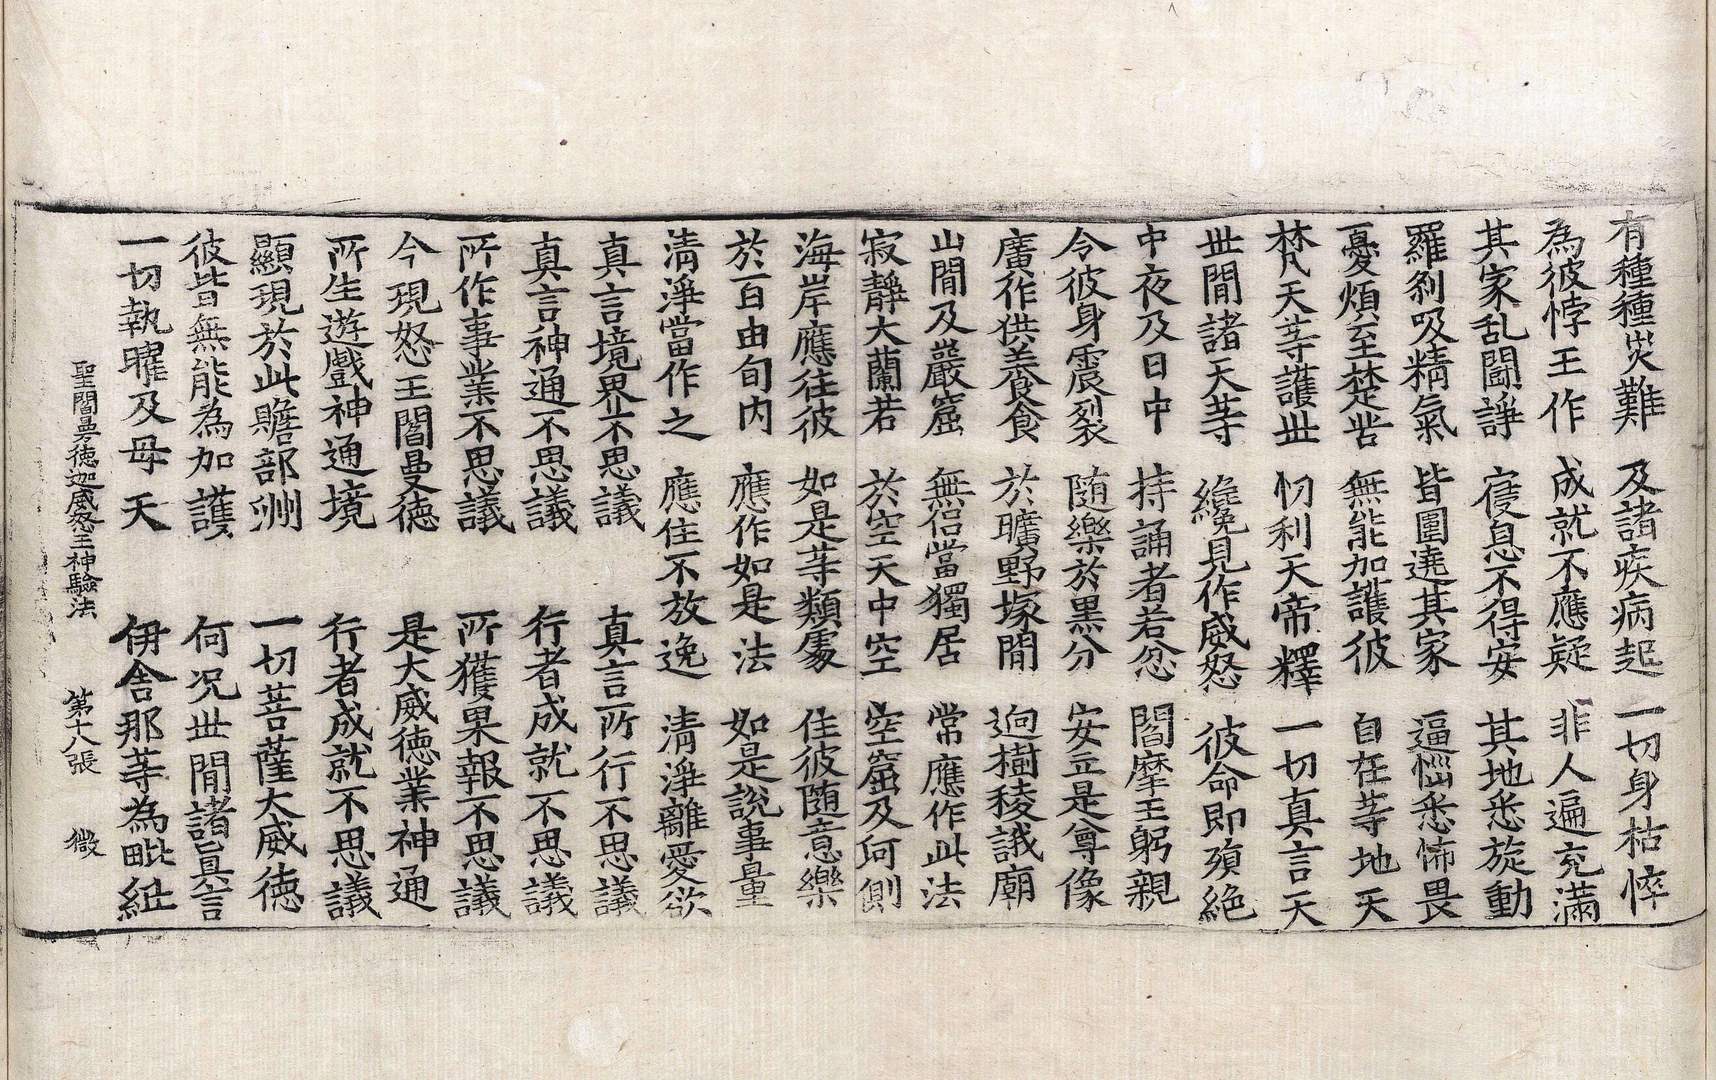 有種種災難　及諸疾病起　一切身枯悴
為彼悖王作　成就不應疑　非人遍充滿
其家乱鬪諍　寢息不得安　其地悉旋動
羅剎吸精氣　皆圍遶其家　逼惱悉怖畏
憂煩至楚苦　無能加護彼　自在䓁地天
梵天䓁護世　忉利天帝釋　一切真言天
世間諸天䓁　纔見作威怒　彼命即殞絕
中夜及日中　持誦者若忿　閻摩王躬親
令彼身震裂　随樂於黑分　安立是尊像
廣作供養食　於曠野塚間　逈樹稜誐廟
山間及巖窟　無侶當獨居　常應作此法
寂靜大蘭若　於空天中空　空窟及河側
海岸應往彼　如是䓁類處　住彼随意樂
於百由旬内　應作如是法　如是説事量
清淨當作之　應住不放逸　清淨離愛欲
真言境界不思議　真言所行不思議
真言神通不思議　行者成就不思議
所作事業不思議　所獲果報不思議
今現怒王閻曼徳　是大威徳業神通
所生遊戲神通境　行者成就不思議
顯現於此贍部洲　一切菩薩大威徳
彼皆無能為加護　何况世間諸真言
一切執曜及母天　伊舍那䓁為毗紐
聖閻曼徳迦威怒王神驗法　第十八張　微